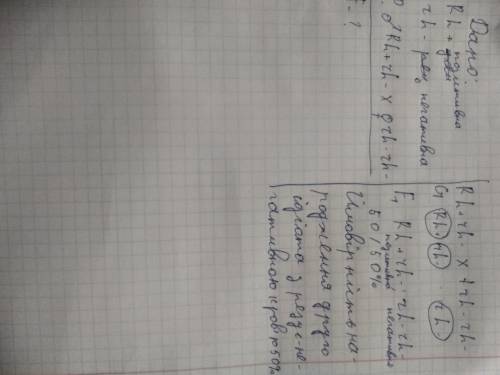 Дано:
Rh+ позитивна
rh- негативна
P. ♂Rh+rh- x ♀rh-rh-
- ?
Rh+rh- x rh-rh-
G Rh+ rh- rh-
F₁ Rh+rh- : rh-rh-
позитивна негативна
50/50%
Ймовірність на-
родження друго
ї дитини з резус-не-
гативною кров'ю 50%